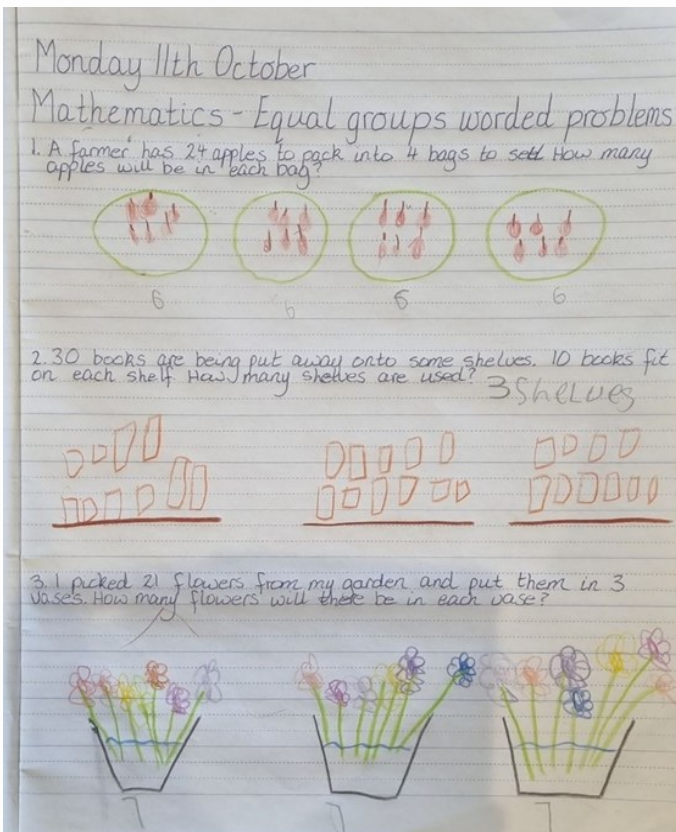 Monday 11th October
Mathematics - Equal groups worded problems
1. A farmer has 24 apples to pack into 4 bags to sell How many
apples will be in each bag?
6 6 6 6
2. 30 books are being put away onto some shelves. 10 books fit
on each shelf How many shelves are used? 3 SheLves
3. I picked 21 flowers from my garden and put them in 3
vases. How many flowers will there be in each vase?
7 7 7